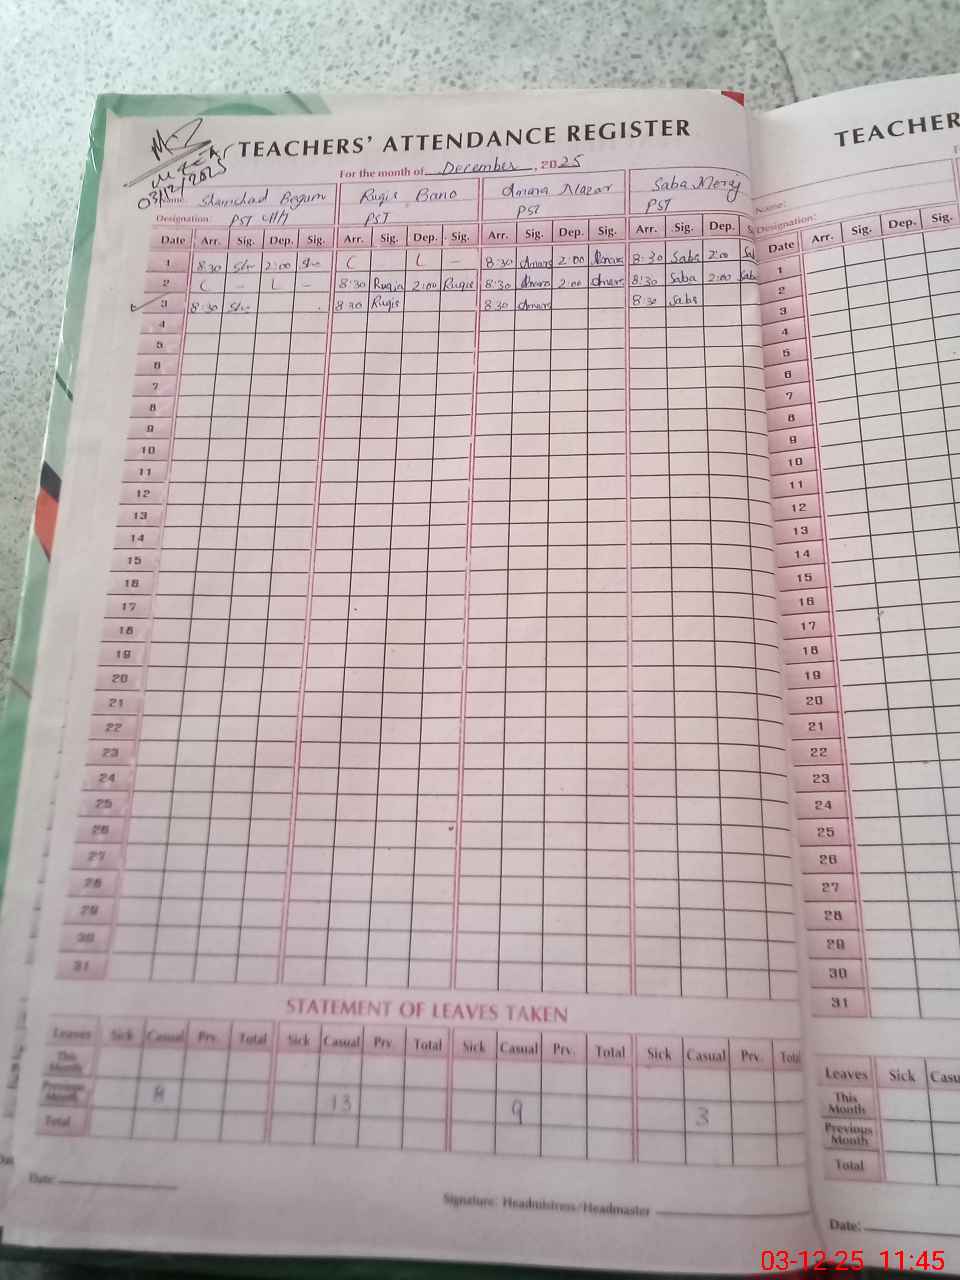 TEACHERS' ATTENDANCE REGISTER
For the month of December, 2025
03/12/2025
Name: Shamshad Begum Ruqia Bano Amara Nazar Saba
Designation: PST PST PST PST
Date Arr. Sig. Dep. Sig. Arr. Sig. Dep. Sig. Arr. Sig. Dep. Sig. Arr. Sig. Dep.
1 8:30 2:00 C L - 8:30 Amara 2:00 Amara 8:30 Saba 2:00
2 C - L - 8:30 Ruqia 2:00 Ruqia 8:30 Amara 2:00 Amara 8:30 Saba 2:00 Saba
3 8:30 8:30 Ruqia 8:30 Amara 8:30 Saba
4
5
6
7
8
9
10
11
12
13
14
15
16
17
18
19
20
21
22
23
24
25
26
27
28
29
30
31
STATEMENT OF LEAVES TAKEN
Leaves Sick Casual Prv. Total Sick Casual Prv. Total Sick Casual Prv. Total Sick Casual Prv. Total
This Month
Previous Month 8 13 9 3
Total
Date:
Signature: Headmistress/Headmaster
TEACHER
Name:
Designation:
Date Arr. Sig. Dep. Sig.
1
2
3
4
5
6
7
8
9
10
11
12
13
14
15
16
17
18
19
20
21
22
23
24
25
26
27
28
29
30
31
Leaves Sick Casu
This Month
Previous Month
Total
Date:
03-12-25 11:45